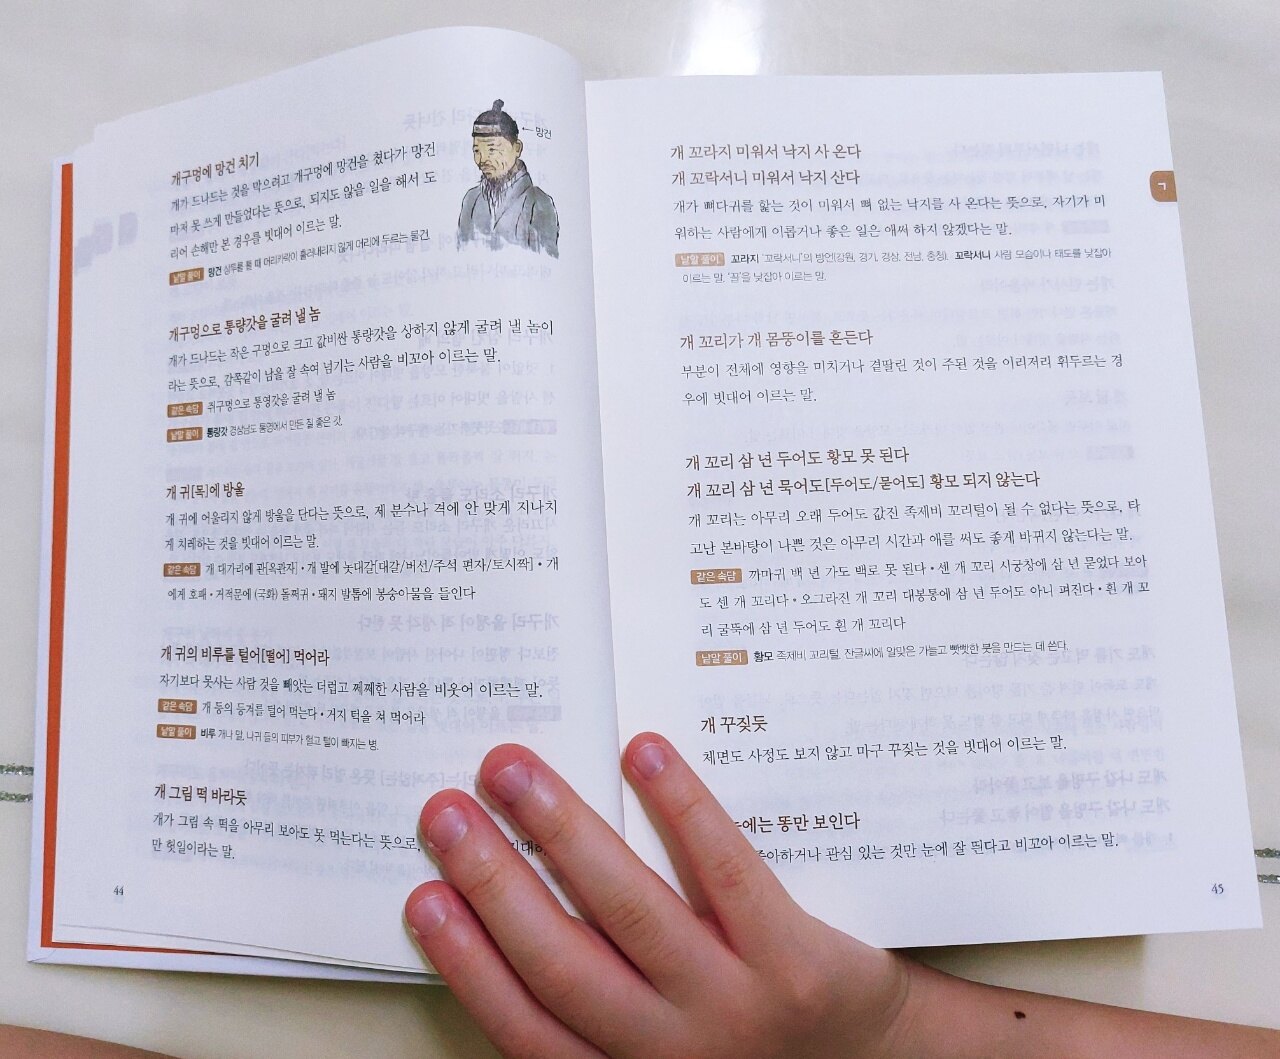 개구멍에 망건 치기
개가 드나드는 것을 막으려고 개구멍에 망건을 쳤다가 망건
마저 못 쓰게 만들었다는 뜻으로, 되지도 않을 일을 해서 도
리어 손해만 본 경우를 빗대어 이르는 말.
낱말 풀이 망건 상투를 틀 때 머리카락이 흘러내리지 않게 머리에 두르는 물건.
←망건
개구멍으로 통량갓을 굴려 낼 놈
개가 드나드는 작은 구멍으로 크고 값비싼 통량갓을 상하지 않게 굴려 낼 놈이
라는 뜻으로, 감쪽같이 남을 잘 속여 넘기는 사람을 비꼬아 이르는 말.
같은 속담 쥐구멍으로 통영갓을 굴려 낼 놈
낱말 풀이 통량갓 경상남도 통영에서 만든 질 좋은 갓.
개 귀[목]에 방울
개 귀에 어울리지 않게 방울을 단다는 뜻으로, 제 분수나 격에 안 맞게 지나치
게 치레하는 것을 빗대어 이르는 말.
같은 속담 개 대가리에 관[옥관자] • 개 발에 놋대갈[대갈/버선/주석 편자/토시짝] • 개
에게 호패 • 거적문에 (국화) 돌쩌귀 • 돼지 발톱에 봉숭아물을 들인다
개 귀의 비루를 털어[떨어] 먹어라
자기보다 못사는 사람 것을 빼앗는 더럽고 쩨쩨한 사람을 비웃어 이르는 말.
같은 속담 개 등의 등겨를 털어 먹는다 • 거지 턱을 쳐 먹어라
낱말 풀이 비루 개나 말, 나귀 들의 피부가 헐고 털이 빠지는 병.
개 그림 떡 바라듯
개가 그림 속 떡을 아무리 보아도 못 먹는다는 뜻으로,
만 헛일이라는 말.
44
개 꼬라지 미워서 낙지 사 온다
개 꼬락서니 미워서 낙지 산다
개가 뼈다귀를 핥는 것이 미워서 뼈 없는 낙지를 사 온다는 뜻으로, 자기가 미
워하는 사람에게 이롭거나 좋은 일은 애써 하지 않겠다는 말.
낱말 풀이 꼬라지 ‘꼬락서니’의 방언(강원, 경기, 경상, 전남, 충청). 꼬락서니 사람 모습이나 태도를 낮잡아
이르는 말. ‘꼴’을 낮잡아 이르는 말.
ㄱ
개 꼬리가 개 몸뚱이를 흔든다
부분이 전체에 영향을 미치거나 곁딸린 것이 주된 것을 이리저리 휘두르는 경
우에 빗대어 이르는 말.
개 꼬리 삼 년 두어도 황모 못 된다
개 꼬리 삼 년 묵어도[두어도/묻어도] 황모 되지 않는다
개 꼬리는 아무리 오래 두어도 값진 족제비 꼬리털이 될 수 없다는 뜻으로, 타
고난 본바탕이 나쁜 것은 아무리 시간과 애를 써도 좋게 바뀌지 않는다는 말.
같은 속담 까마귀 백 년 가도 백로 못 된다 • 센 개 꼬리 시궁창에 삼 년 묻었다 보아
도 센 개 꼬리다 • 오그라진 개 꼬리 대봉통에 삼 년 두어도 아니 펴진다 • 흰 개 꼬
리 굴뚝에 삼 년 두어도 흰 개 꼬리다
낱말 풀이 황모 족제비 꼬리털. 잔글씨에 알맞은 가늘고 빳빳한 붓을 만드는 데 쓴다.
개 꾸짖듯
체면도 사정도 보지 않고 마구 꾸짖는 것을 빗대어 이르는 말.
눈에는 똥만 보인다
좋아하거나 관심 있는 것만 눈에 잘 띈다고 비꼬아 이르는 말.
45